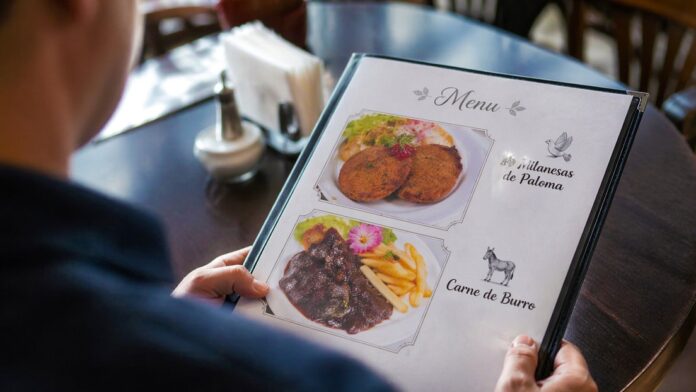 Menu
Milanesas
de Paloma
Carne de Burro